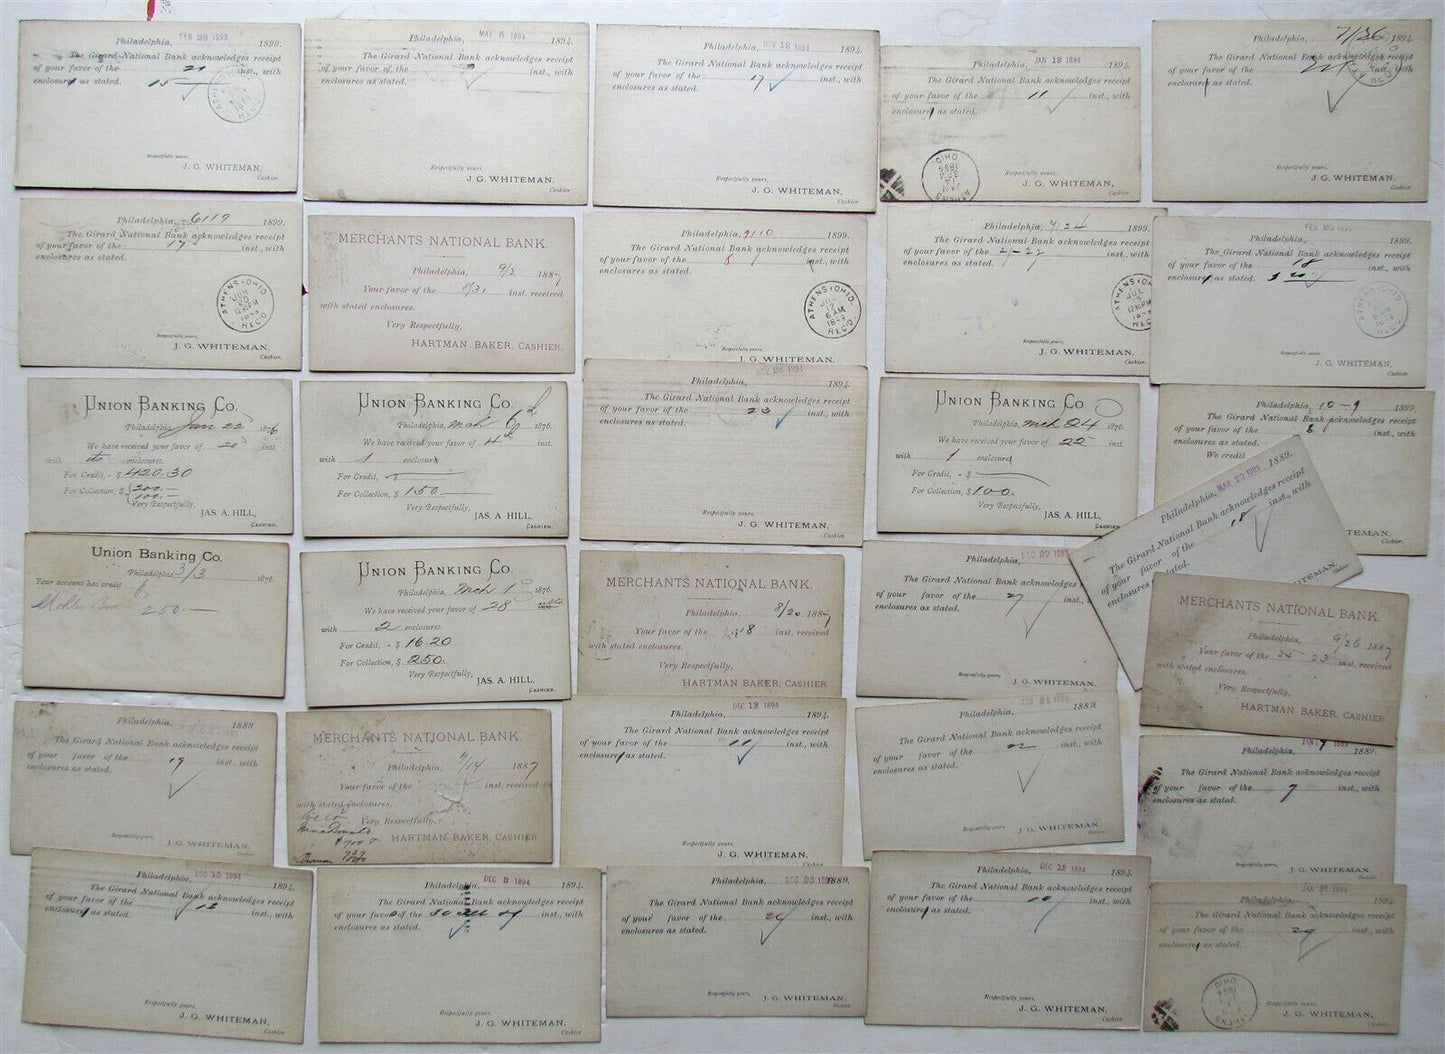 Philadelphia, FEB 23 1899 1899.
The Girard National Bank acknowledges receipt
of your favor of the 21 inst., with
enclosures as stated. 15
Respectfully yours,
J. G. WHITEMAN,
Cashier.
Philadelphia, MAY 5 1894 1894.
The Girard National Bank acknowledges receipt
of your favor of the 3 inst., with
enclosures as stated.
Respectfully yours,
J. G. WHITEMAN,
Cashier.
Philadelphia, NOV 19 1894 1894.
The Girard National Bank acknowledges receipt
of your favor of the 17 inst., with
enclosures as stated.
Respectfully yours,
J. G. WHITEMAN,
Cashier.
Philadelphia, JAN 13 1894 1894.
The Girard National Bank acknowledges receipt
of your favor of the 11 inst., with
enclosures as stated.
Respectfully yours,
J. G. WHITEMAN,
Cashier.
OHIO
Philadelphia, 7/26 1894.
The Girard National Bank acknowledges receipt
of your favor of the inst., with
enclosures as stated.
Respectfully yours,
J. G. WHITEMAN,
Cashier.
Philadelphia, 6/19 1899.
The Girard National Bank acknowledges receipt
of your favor of the 17 inst., with
enclosures as stated.
ATHENS, OHIO.
JUN
20
REC'D.
Respectfully yours,
J. G. WHITEMAN,
Cashier.
MERCHANTS NATIONAL BANK.
Philadelphia, 9/2 1887
Your favor of the 8/31 inst. received
with stated enclosures.
Very Respectfully,
HARTMAN BAKER, CASHIER.
Philadelphia, 7/10 1899.
The Girard National Bank acknowledges receipt
of your favor of the 8 inst., with
enclosures as stated.
ATHENS, OHIO.
JUL
8 AM
1899
REC'D.
Respectfully yours,
J. G. WHITEMAN,
Philadelphia, 7/24 1899.
The Girard National Bank acknowledges receipt
of your favor of the 21-22 inst., with
enclosures as stated.
Respectfully yours,
J. G. WHITEMAN,
Cashier.
Philadelphia, FEB 20 1899.
The Girard National Bank acknowledges receipt
of your favor of the 18 inst., with
enclosures as stated.
Respectfully yours,
J. G. WHITEMAN,
Cashier.
UNION BANKING CO.
Philadelphia, Jan 22 1876
We have received your favor of 20 inst
with enclosures.
For Credit, - $ 420.30
For Collection, $ 200.—
100.—
Very Respectfully,
JAS. A. HILL,
CASHIER.
UNION BANKING CO.
Philadelphia, Mch 6 1876.
We have received your favor of 4th inst
with 1 enclosures.
For Credit, - $
For Collection, $ 150.
Very Respectfully,
JAS. A. HILL,
CASHIER.
Philadelphia, NOV 26 1894 1894.
The Girard National Bank acknowledges receipt
of your favor of the 23 inst., with
enclosures as stated.
Respectfully yours,
J. G. WHITEMAN,
Cashier.
UNION BANKING CO.
Philadelphia, Mch 24 1876.
We have received your favor of 22 inst
with 1 enclosures.
For Credit, - $
For Collection, $ 100.
Very Respectfully,
JAS. A. HILL,
CASHIER.
Philadelphia, 10-9 1899.
The Girard National Bank acknowledges receipt
of your favor of the inst., with
enclosures as stated.
We credit
WHITEMAN,
Cashier.
Philadelphia, MAR 20 1889 1889.
The Girard National Bank acknowledges receipt
of your favor of the 18 inst., with
enclosures as stated.
WHITEMAN,
Union Banking Co.
Philadelphia 3/3 1876.
Your account has credit
250.—
UNION BANKING CO.
Philadelphia, Mch 1 1876.
We have received your favor of 28
with 2 enclosures.
For Credit, - $ 16.20
For Collection, $ 250.
Very Respectfully,
JAS. A. HILL,
CASHIER.
MERCHANTS NATIONAL BANK.
Philadelphia, 8/20 1887
Your favor of the 18 inst. received
with stated enclosures.
Very Respectfully,
HARTMAN BAKER, CASHIER.
Philadelphia,
The Girard National Bank acknowledges
of your favor of the 27 inst.,
enclosures as stated.
Respectfully yours,
J. G. WHITEMAN,
Cashier.
MERCHANTS NATIONAL BANK.
Philadelphia, 9/26 1887
Your favor of the 23 inst. received
with stated enclosures.
Very Respectfully,
HARTMAN BAKER, CASHIER
Philadelphia, 1889
The Girard National Bank acknowledges receipt
of your favor of the 19 inst., with
enclosures as stated.
Respectfully yours,
J. G. WHITEMAN,
Cashier.
MERCHANTS NATIONAL BANK.
Philadelphia, 1887
Your favor of the inst. received
with stated enclosures.
Very Respectfully,
HARTMAN BAKER, CASHIER
Philadelphia, DEC 13 1894 1894.
The Girard National Bank acknowledges receipt
of your favor of the 11 inst., with
enclosures as stated.
Respectfully yours,
J. G. WHITEMAN,
Cashier.
Philadelphia, 1889.
The Girard National Bank acknowledges receipt
of your favor of the 22 inst., with
enclosures as stated.
Respectfully yours,
J. G. WHITEMAN,
Cashier.
1889.
The Girard National Bank acknowledges receipt
of your favor of the 7 inst., with
enclosures as stated.
J. G. WHITEMAN,
Cashier.
Philadelphia, DEC 15 1894 1894.
The Girard National Bank acknowledges receipt
of your favor of the 13 inst., with
enclosures as stated.
Respectfully yours,
J. G. WHITEMAN,
Cashier.
Philadelphia, DEC 3 1894 1894.
The Girard National Bank acknowledges receipt
of your favor of the inst., with
enclosures as stated.
Respectfully yours,
J. G. WHITEMAN,
Cashier
Philadelphia, 1889.
The Girard National Bank acknowledges receipt
of your favor of the inst., with
enclosures as stated.
Respectfully yours,
J. G. WHITEMAN,
Cashier.
Philadelphia, DEC 12 1894.
The Girard National Bank acknowledges receipt
of your favor of the 10 inst., with
enclosures as stated.
Respectfully yours,
J. G. WHITEMAN,
Cashier.
Philadelphia, JAN 31 1894 1894.
The Girard National Bank acknowledges receipt
of your favor of the 29 inst., with
enclosures as stated.
OHIO
Respectfully yours,
J. G. WHITEMAN,
Cashier.